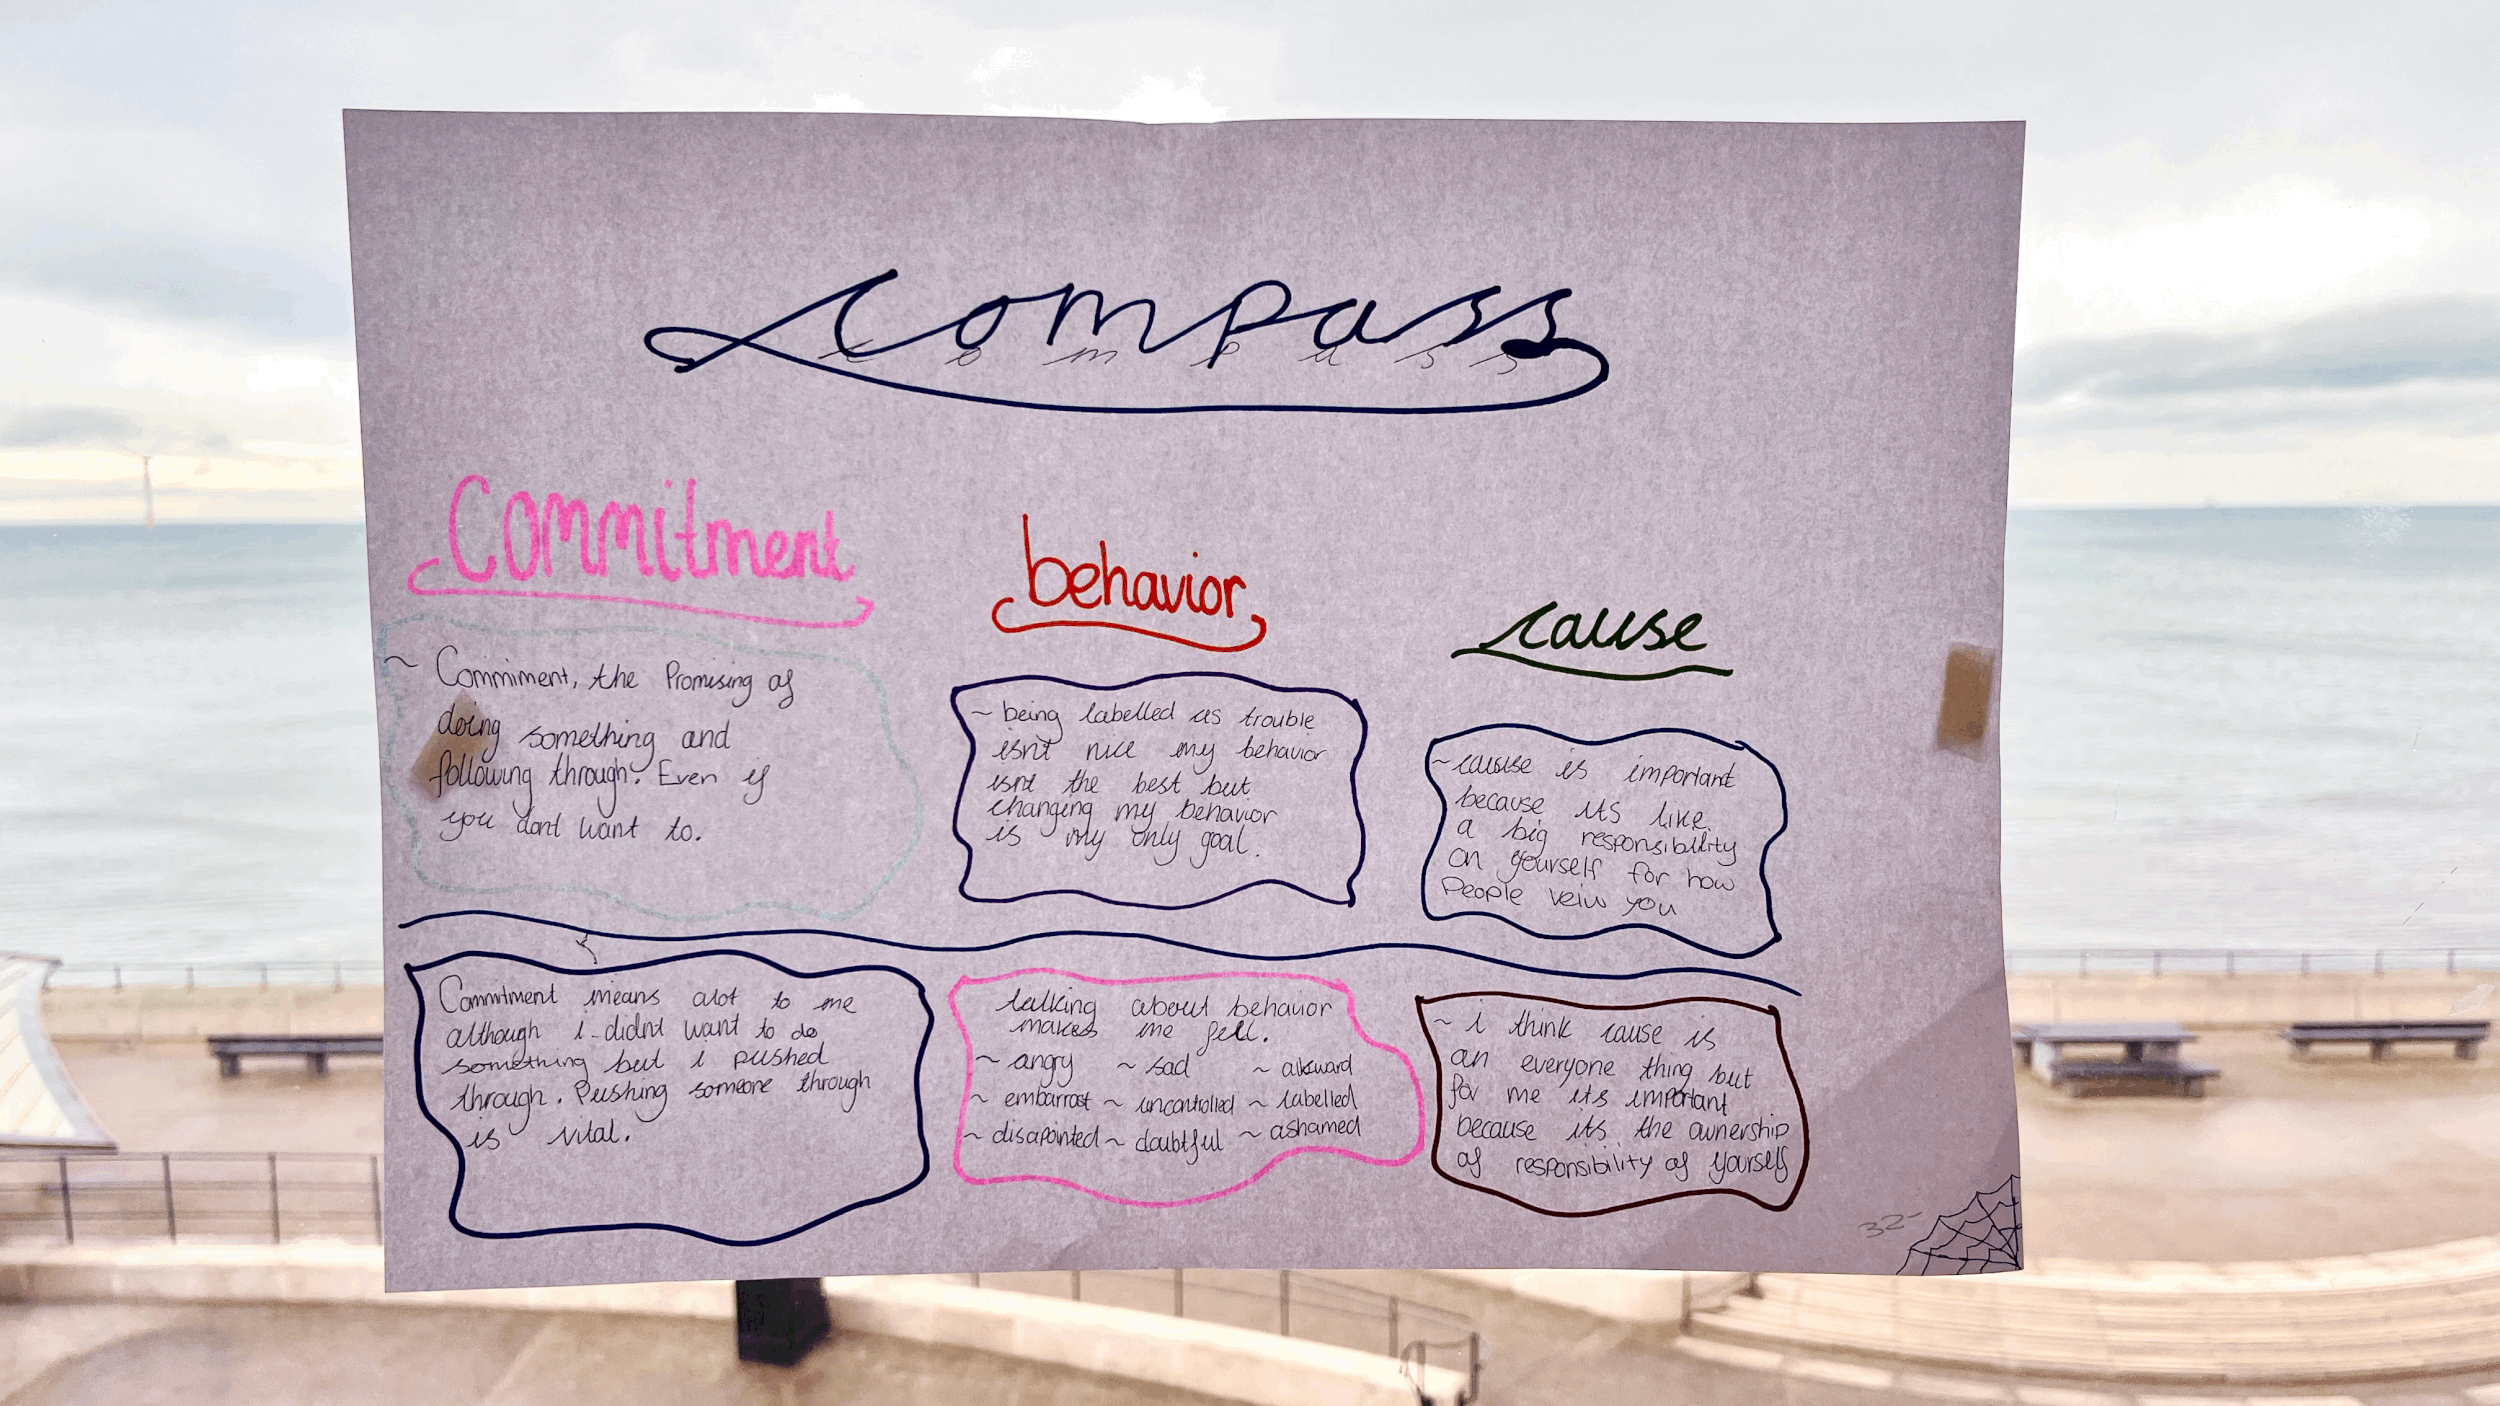 compass
c o m p a s s
Commitment
~ Commiment, the Promising of
doing something and
following through. Even if
you dont want to.
behavior
~ being labelled as trouble
isnt nice my behavior
isnt the best but
changing my behavior
is my only goal.
cause
~ cause is important
because its like
a big responsibility
on yourself for how
People veiw you
Commitment means alot to me
although i didnt want to do
something but i pushed
through. Pushing someone through
is vital.
talking about behavior
makes me fell.
~ angry ~ sad ~ alkward
~ embarrost ~ uncontrolled ~ labelled
~ disapointed ~ doubtful ~ ashamed
~ i think cause is
an everyone thing but
for me its important
because its the ownership
of responsibility of yourself
32-